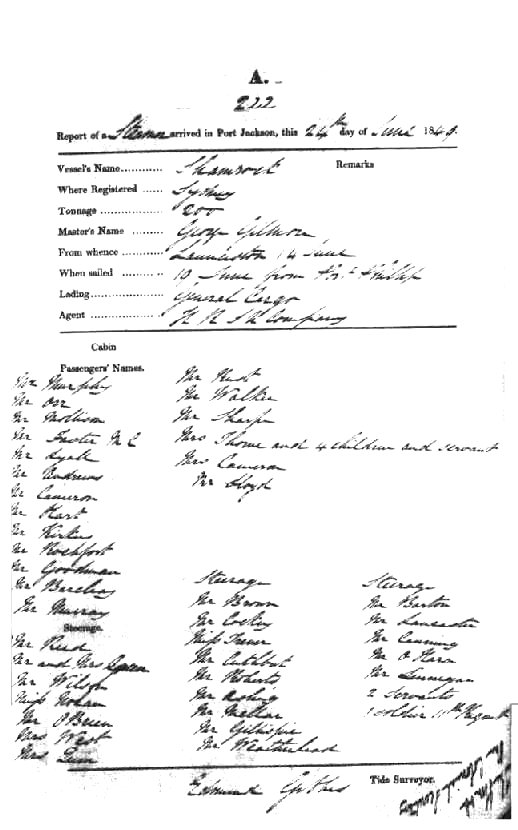 A.
222
Report of a Steamer arrived in Port Jackson, this 24th day of June 1849.
Vessel's Name........... Shamrock Remarks
Where Registered ...... Sydney
Tonnage .................. 200
Master's Name ........ George Gilmore
From whence ........... Launceston 14 June
When sailed ........... 19 June from Port Phillip
Lading.................... General Cargo
Agent .................... H R S N Company
Cabin
Passengers' Names.
Mr Murphy
Mr Orr
Mr Mollison
Mr Foster M C
Mr Lyall
Mr Andrews
Mr Cameron
Mr Hart
Mr Kirk
Mr Rochfort
Mr Goodman
Mr Barclay
Mr Murray
Mr Hust
Mr Walker
Mr Sharpe
Mrs Thome and 4 children and servant
Mrs Cameron
Mr Lloyd
Steerage.
Mr Reid
Mr and Mrs
Mr Wilson
Miss Nolan
Mr O'Brien
Mrs West
Mrs Quin
Steerage
Mr Brown
Mr
Miss Trever
Mr Cuthbert
Mr Roberts
Mr
Mr Mellar
Mr Gillispie
Mr Weatherhead
Steerage
Mr Barton
Mr Lancaster
Mr Canning
Mr O Hara
Mr Finnegan
2 Servants
1 soldier 11th Regment
Edmund Tide Surveyor.